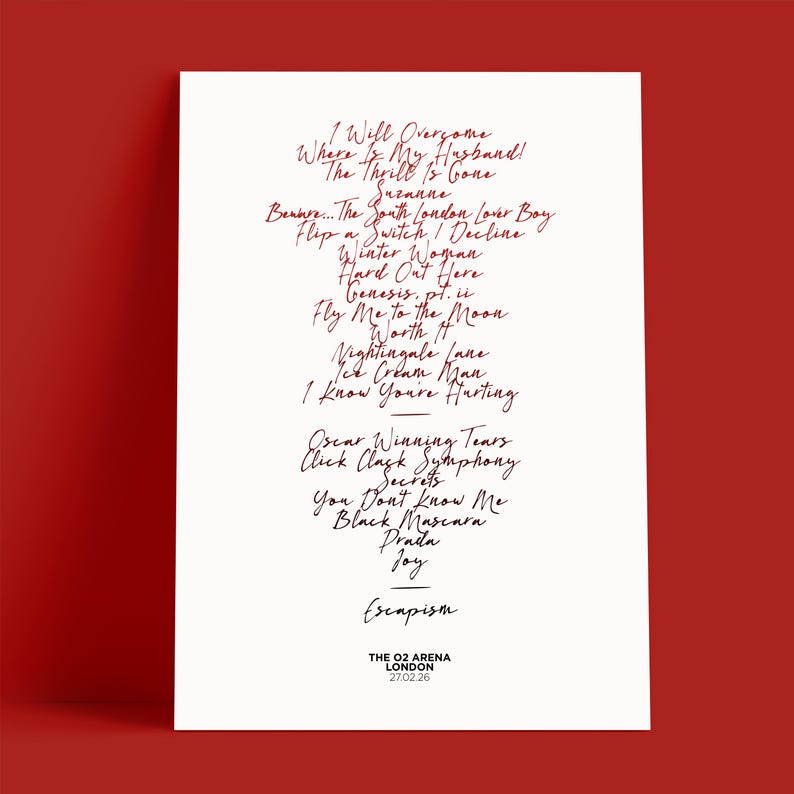 I Will Overcome
Where Is My Husband!
The Thrill Is Gone
Suzanne
Beware...The South London Lover Boy
Flip a Switch / Decline
Winter Woman
Hard Out Here
Genesis, pt. ii
Fly Me to the Moon
Worth It
Nightingale Lane
Ice Cream Man
I Know You're Hurting
Oscar Winning Tears
Click Clack Symphony
Secrets
You Don't Know Me
Black Mascara
Prada
Joy
Escapism
THE O2 ARENA
LONDON
27.02.26